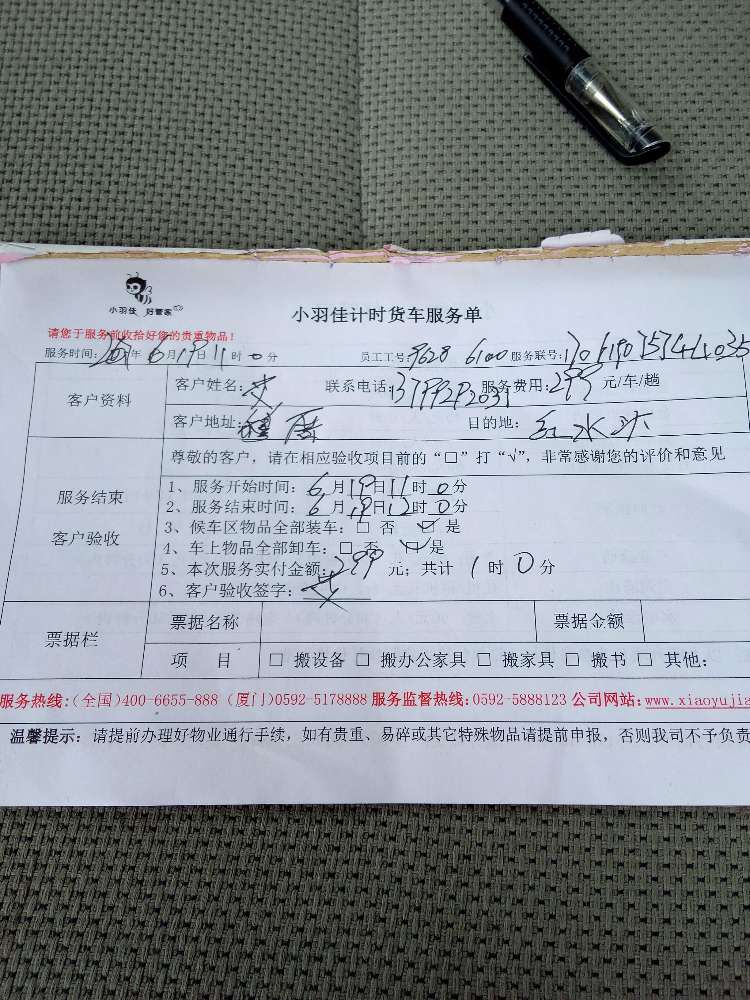 小羽佳 好管家
小羽佳计时货车服务单
请您于服务前收拾好您的贵重物品！
服务时间： 年 6 月 19 日 11 时 0 分 员工工号： 9628 6100 服务联号：
客户资料
客户姓名： 联系电话： 服务费用：299 元/车/趟
客户地址： 目的地：
服务结束
客户验收
尊敬的客户，请在相应验收项目前的“□”打“√”，非常感谢您的评价和意见
1、服务开始时间：6 月 19 日 11 时 0 分
2、服务结束时间：6 月 19 日 12 时 0 分
3、候车区物品全部装车：□ 否 ☑ 是
4、车上物品全部卸车：□ 否 ☑ 是
5、本次服务实付金额：299 元；共计 1 时 0 分
6、客户验收签字：
票据栏
票据名称 票据金额
项 目 □ 搬设备 □ 搬办公家具 □ 搬家具 □ 搬书 □ 其他：
服务热线：(全国)400-6655-888 (厦门)0592-5178888 服务监督热线：0592-5888123 公司网站：www.xiaoyujia
温馨提示：请提前办理好物业通行手续，如有贵重、易碎或其它特殊物品请提前申报，否则我司不予负责